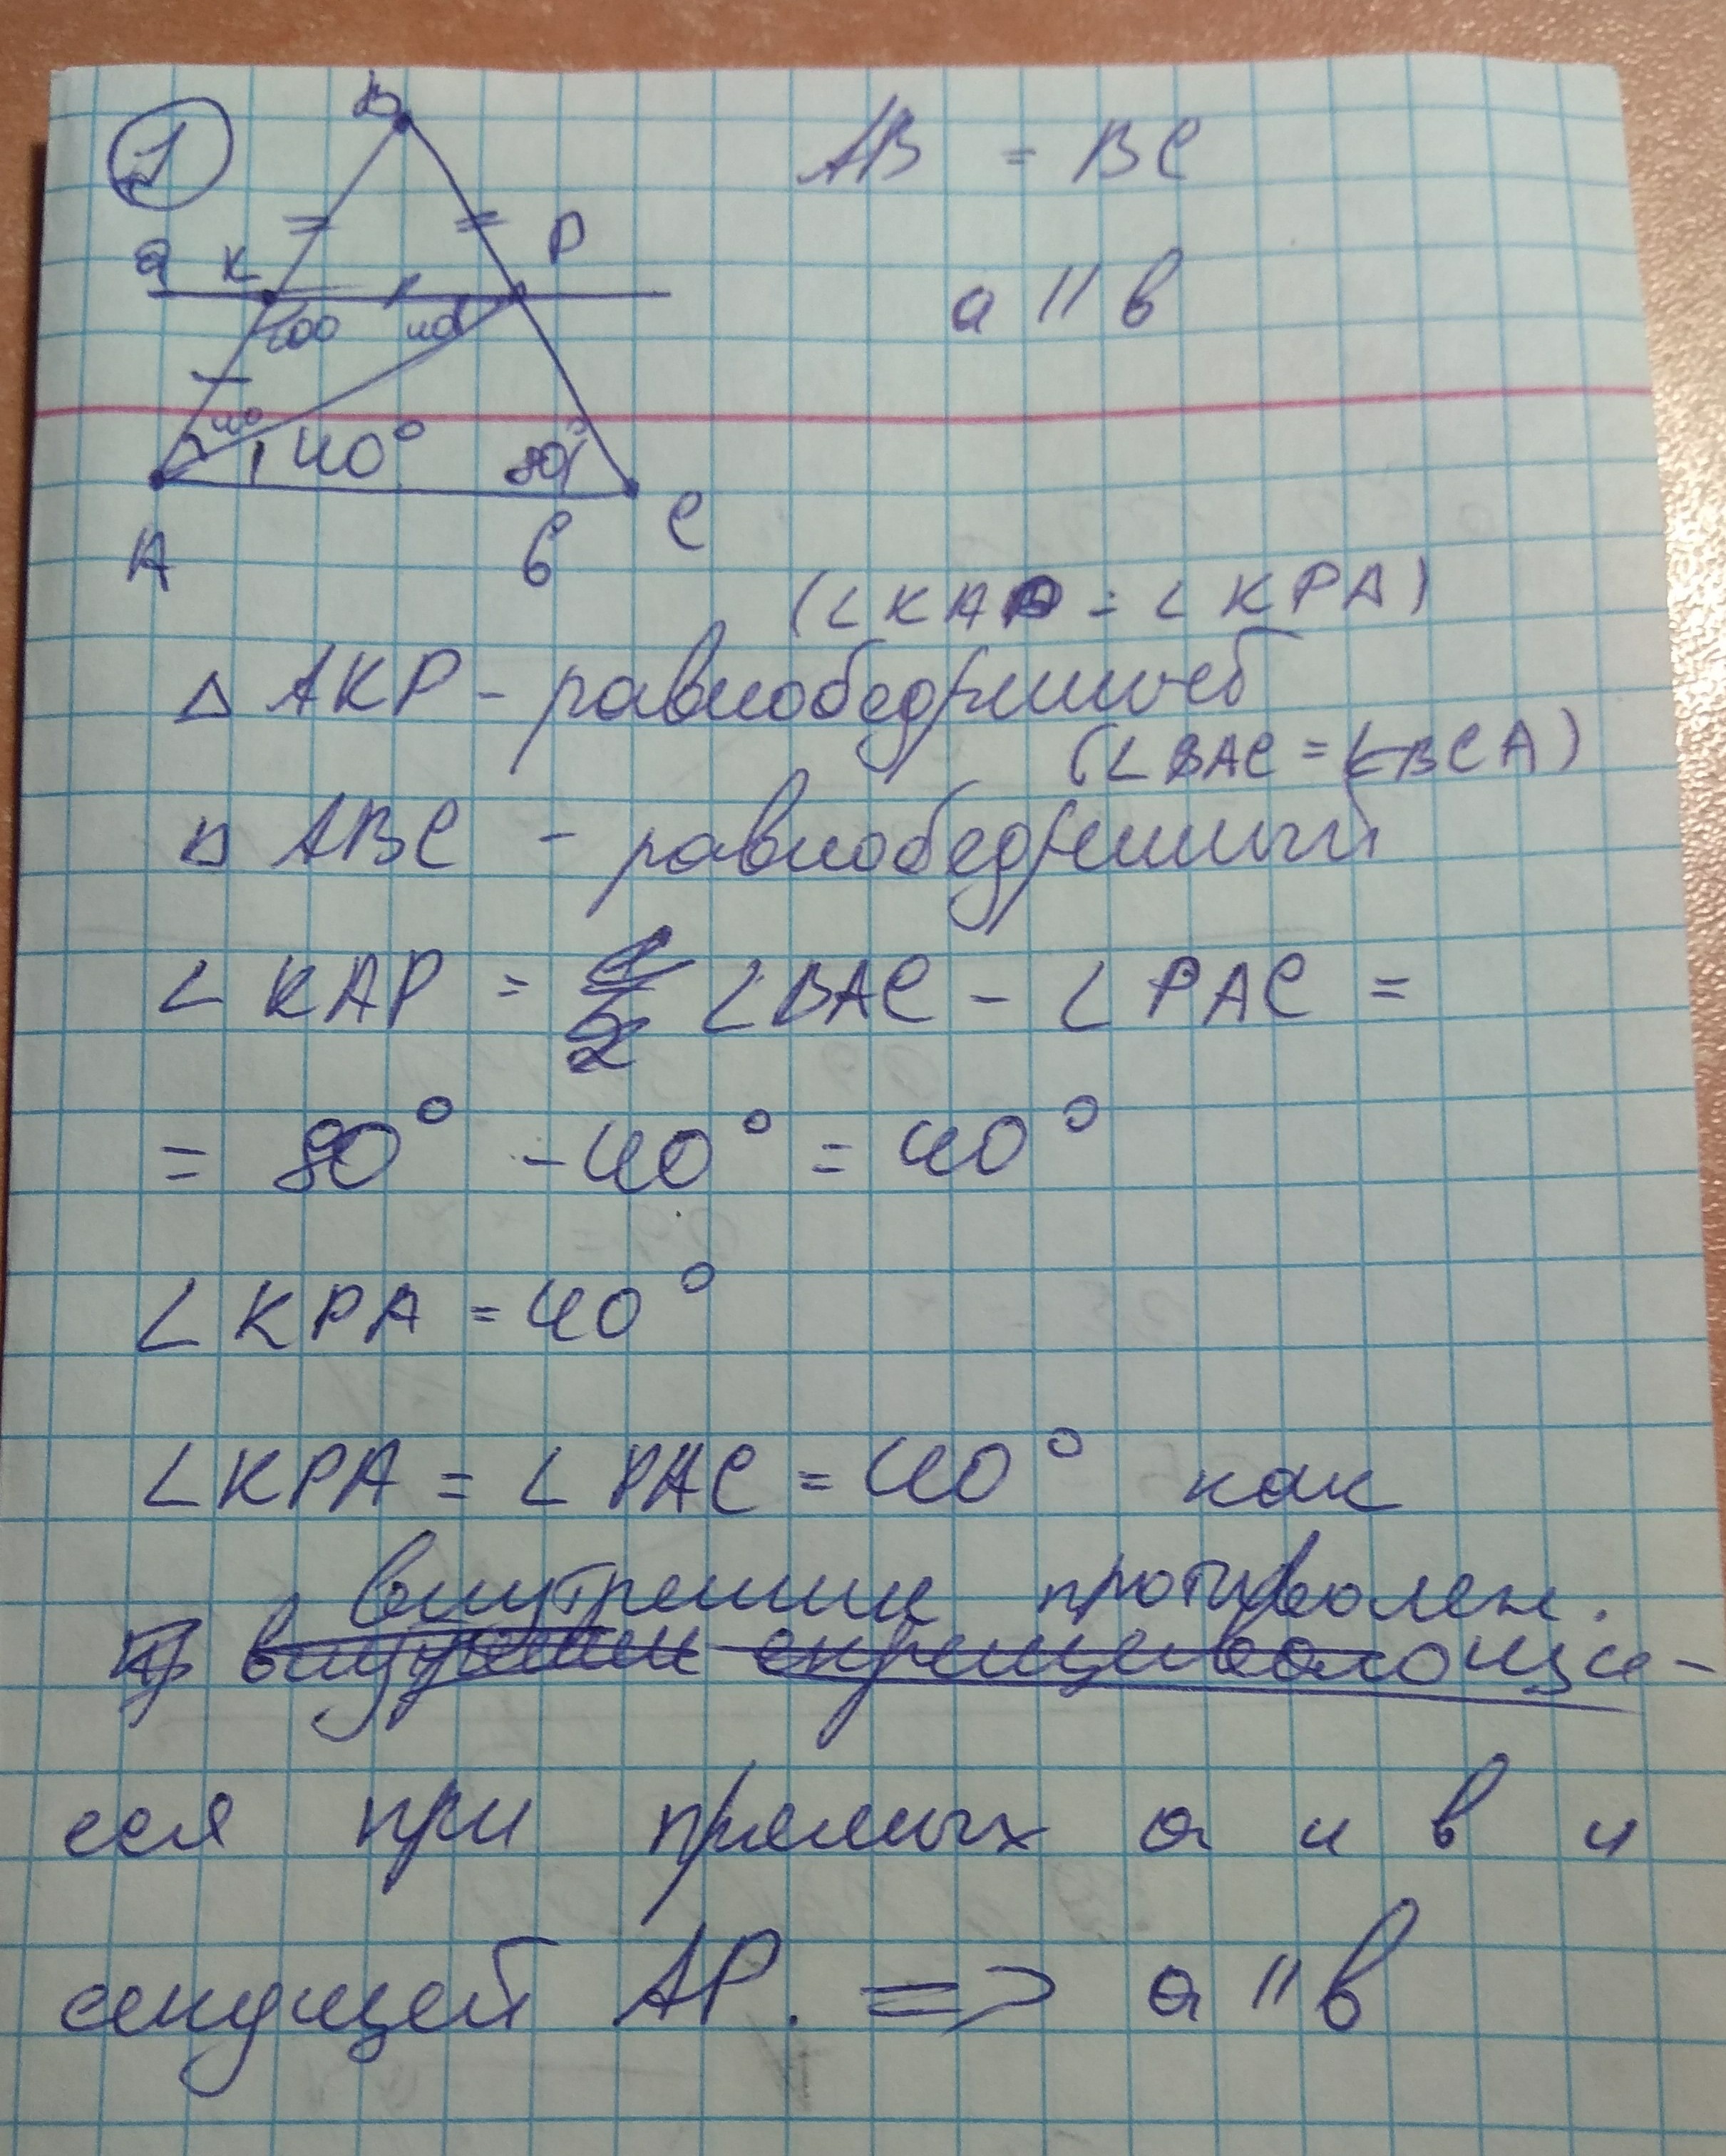 1 B AB = BC
a K P a || в
100 40°
40° 40° 80°
A в C
(∠KAP = ∠KPA)
△ AKP - равнобедренный
(∠BAC = ∠BCA)
△ ABC - равнобедренный
∠KAP = ∠BAC - ∠PAC =
= 80° - 40° = 40°
∠KPA = 40°
∠KPA = ∠PAC = 40° как
внутренние противолеж.
скрещивающие-
еся при прямых a и в и
секущей AP. => a || в